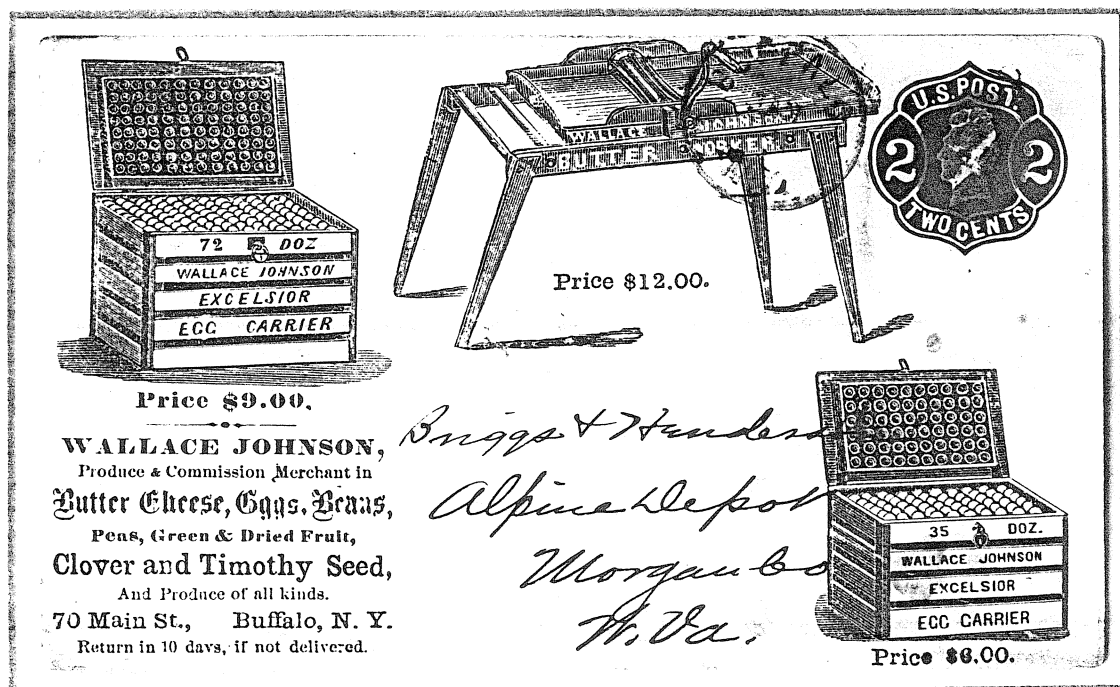 72 DOZ
WALLACE JOHNSON
EXCELSIOR
EGG CARRIER
Price $9.00.
WALLACE JOHNSON,
Produce & Commission Merchant in
Butter Cheese, Eggs, Beans,
Peas, Green & Dried Fruit,
Clover and Timothy Seed,
And Produce of all kinds.
70 Main St., Buffalo, N. Y.
Return in 10 days, if not delivered.
WALLACE JOHNSON
BUTTER WORKER
Price $12.00.
U.S. POST.
2 2
TWO CENTS
Briggs & Henderson
Alpine Depot
Morgan Co
W. Va.
35 DOZ.
WALLACE JOHNSON
EXCELSIOR
EGG CARRIER
Price $6.00.